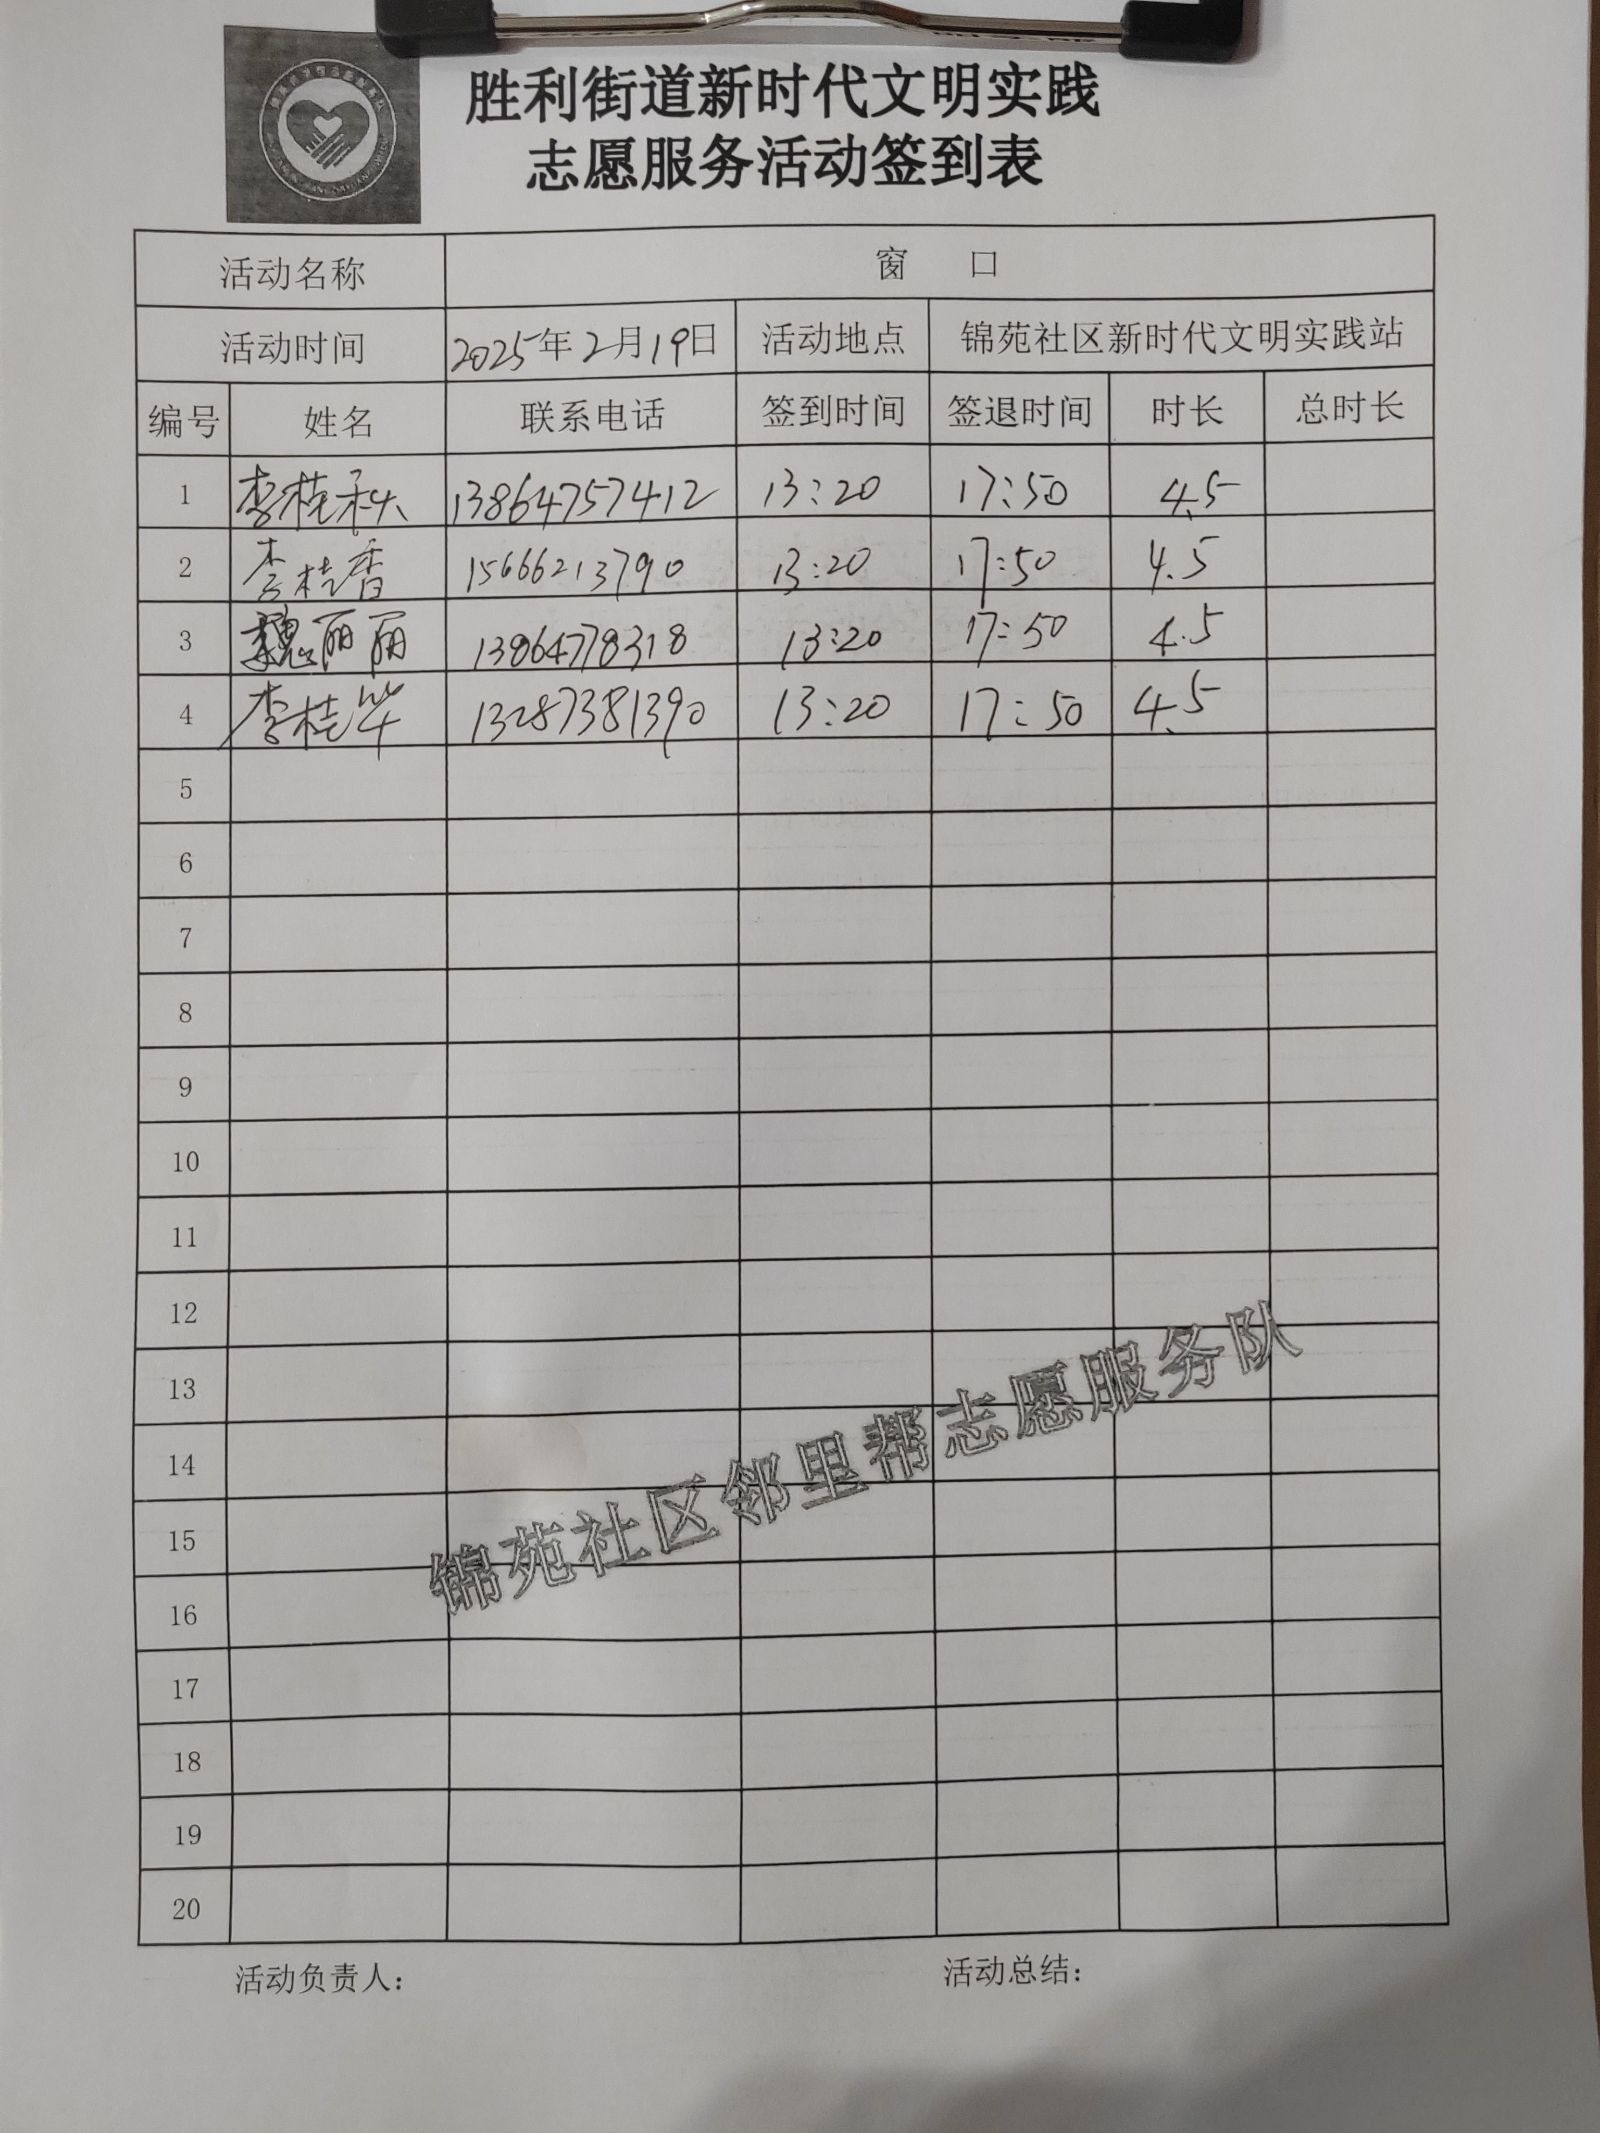 胜利街道新时代文明实践
志愿服务活动签到表
活动名称 窗 口
活动时间 2025年2月19日 活动地点 锦苑社区新时代文明实践站
编号 姓名 联系电话 签到时间 签退时间 时长 总时长
1 李桂秋 13864757412 13:20 17:50 4.5
2 李桂香 15666213790 13:20 17:50 4.5
3 魏丽丽 13864778318 13:20 17:50 4.5
4 李桂华 13287381390 13:20 17:50 4.5
5
6
7
8
9
10
11
12
13
14
15
16
17
18
19
20
锦苑社区邻里帮志愿服务队
活动负责人: 活动总结: